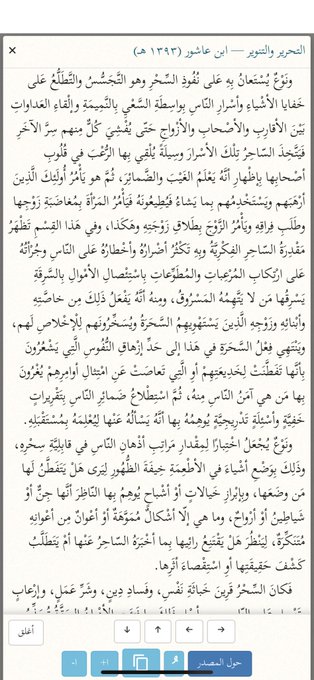 التحرير والتنوير — ابن عاشور (١٣٩٣ هـ)
×
ونَوْعٌ يُسْتَعانُ بِهِ عَلى نُفُوذِ السِّحْرِ وهو التَّجَسُّسُ والتَّطَلُّعُ عَلى
خَفايا الأشْياءِ وأسْرارِ النّاسِ بِواسِطَةِ السَّعْيِ بِالنَّمِيمَةِ وإلْقاءِ العَداواتِ
بَيْنَ الأقارِبِ والأصْحابِ والأزْواجِ حَتّى يُفْشِيَ كُلٌّ مِنهم سِرَّ الآخَرِ
فَيَتَّخِذَ السّاحِرُ تِلْكَ الأسْرارَ وسِيلَةً يُلْقِي بِها الرُّعْبَ في قُلُوبِ
أصْحابِها بِإظْهارِ أنَّهُ يَعْلَمُ الغَيْبَ والضَّمائِرَ، ثُمَّ هو يَأْمُرُ أُولَئِكَ الَّذِينَ
أرْهَبَهم ويَسْتَخْدِمُهم بِما يَشاءُ فَيُطِيعُونَهُ فَيَأْمُرُ المَرْأةَ بِمُغاضَبَةِ زَوْجِها
وطَلَبِ فِراقِهِ ويَأْمُرُ الزَّوْجَ بِطَلاقِ زَوْجَتِهِ وهَكَذا، وفي هَذا القِسْمِ تَظْهَرُ
مَقْدِرَةُ السّاحِرِ الفِكْرِيَّةُ وبِهِ تَكْثُرُ أضْرارُهُ وأخْطارُهُ عَلى النّاسِ وجُرْأتُهُ
عَلى ارْتِكابِ المُرْعِباتِ والمُطَوِّعاتِ بِاسْتِئْصالِ الأمْوالِ بِالسَّرِقَةِ
يَسْرِقُها مَن لا يَتَّهِمُهُ المَسْرُوقُ، ومِنهُ أنَّهُ يَفْعَلُ ذَلِكَ مِن خاصَّتِهِ
وأبْنائِهِ وزَوْجِهِ الَّذِينَ يَسْتَهْوِيهِمُ السَّحَرَةُ ويُسَخِّرُونَهم لِلْإخْلاصِ لَهم،
ويَنْتَهِي فِعْلُ السَّحَرَةِ في هَذا إلى حَدِّ إزْهاقِ النُّفُوسِ الَّتِي يَشْعُرُونَ
بِأنَّها تَفَطَّنَتْ لِخَدِيعَتِهِمْ أوِ الَّتِي تَعاصَتْ عَنِ امْتِثالِ أوامِرِهِمْ يُغْرُونَ
بِها مَن هي آمَنُ النّاسِ مِنهُ، ثُمَّ اسْتِطْلاعُ ضَمائِرِ النّاسِ بِتَقْرِيراتٍ
خَفِيَّةٍ وأسْئِلَةٍ تَدْرِيجِيَّةٍ يُوهِمُهُ بِها أنَّهُ يَسْألُهُ عَنْها لِيُعْلِمَهُ بِمُسْتَقْبَلِهِ.
ونَوْعٌ يُجْعَلُ اخْتِبارًا لِمِقْدارِ مَراتِبِ أذْهانِ النّاسِ في قابِلِيَّةِ سِحْرِهِ،
وذَلِكَ بِوَضْعِ أشْياءَ في الأطْعِمَةِ خِيفَةَ الظُّهُورِ لِيَرى هَلْ يَتَفَطَّنُ لَها
مَن وضَعَها، وبِإبْرازِ خَيالاتٍ أوْ أشْباحٍ يُوهِمُ بِها النّاظِرَ أنَّها جِنٌّ أوْ
شَياطِينُ أوْ أرْواحٌ، وما هي إلّا أشْكالٌ مُمَوَّهَةٌ أوْ أعْوانٌ مِن أعْوانِهِ
مُتَنَكِّرَةٌ، لِيَنْظُرَ هَلْ يَقْتَنِعُ رائِيها بِما أخْبَرَهُ السّاحِرُ عَنْها أمْ يَتَطَلَّبُ
كَشْفَ حَقِيقَتِها أوِ اسْتِقْصاءَ أثَرِها.
فَكانَ السِّحْرُ قَرِينَ خَباثَةِ نَفْسٍ، وفَسادِ دِينٍ، وشَرِّ عَمَلٍ، وإرْعابٍ
→
←
↑
↓
أغلق
حول المصدر
+١
-١